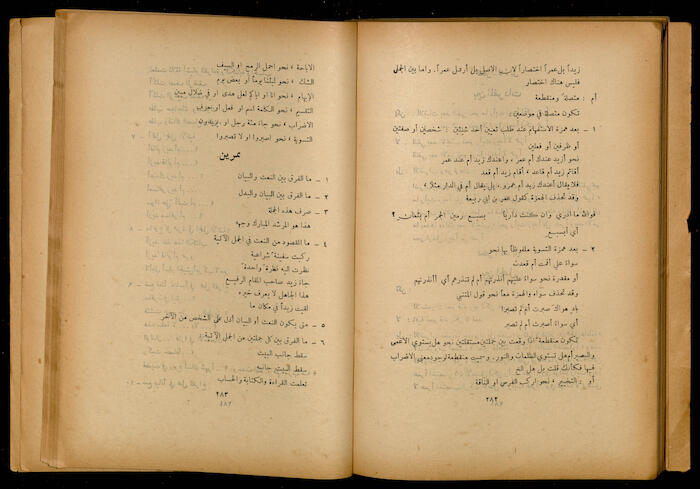 زيداً بل عمراً اختصاراً لان الاصل بل أرقل عمراً. واما بين الجمل
فليس هناك اختصار
أم : متصلة ومنقطعة
تكون متصلة في موضعين
١ - بعد همزة الاستفهام عند طلب تعيين أحد شيئين شخصين أو صفتين
أو ظرفين أو فعلين
نحو أزيد عندك أم عمر ، وأعندك زيد أم عند عمر
أقائم زيد أم قاعد ، أقام زيد أم قعد
فلا يقال أعندك زيد أم عمرو ، بل يقال أم في الدار مثلاً ،
وقد تحذف الهمزة كقول عمر بن ابي ربيعة
فوالله ما ادري وان كنت دارياً بسبع رمين الجمر أم بثمان ؟
أي أبسبع
٢ - بعد همزة التسوية ملفوظاً بها نحو
سواء علي أقت أم قعدت
أو مقدرة نحو سواء عليهم أنذرتهم أم لم تنذرهم أي أأنذرتهم
وقد تحذف سواء والهمزة معاً نحو قول المتنبي
بادٍ هواك صبرت أم لم تصبرا
أي سواء أصبرت أم لم تصبر
تكون منقطعة اذا وقعت بين جملتين مستقلتين نحو هل يستوي الاعمى
والبصير أم هل تستوي الظلمات والنور. وسميت منقطعة لوجود معنى الاضراب
فيها فكأنك قلت بل هل الخ
أو : التخيير ، نحو اركب الفرس أو الناقة
٢٨٢
الاباحة ، نحو احمل الرمح او السيف
الشك ، نحو لبثنا يوماً أو بعض يوم
الإبهام ، نحو انا او اياكم لعلى هدى او في ضلال مبين
التقسيم ، نحو الكلمة اسم او فعل او حرف
الاضراب ، نحو جاء مئة رجل او يزيدون
التسوية ، نحو اصبروا او لا تصبروا
تمارين
١ - ما الفرق بين النعت والبيان
٢ - ما الفرق بين البيان والبدل
٣ - صرف هذه الجملة
هذا هو المرشد المبارك وجهه
٤ - ما المقصود من النعت في الجمل الآتية
ركبت سفينة شراعية
نظرت اليه نظرة واحدة
جاء زيد صاحب المقام الرفيع
هذا الجاهل لا يعرف خيره
لقيت زيداً في مكان ما
٥ - متى يكون النعت أو البيان أدل على الشخص من الآخر
٦ - ما الفرق بين كل جملتين من الجمل الآتية
سقط جانب البيت
سقط البيت جانبه
تعلمت القراءة والكتابة والحساب
٢٨٣